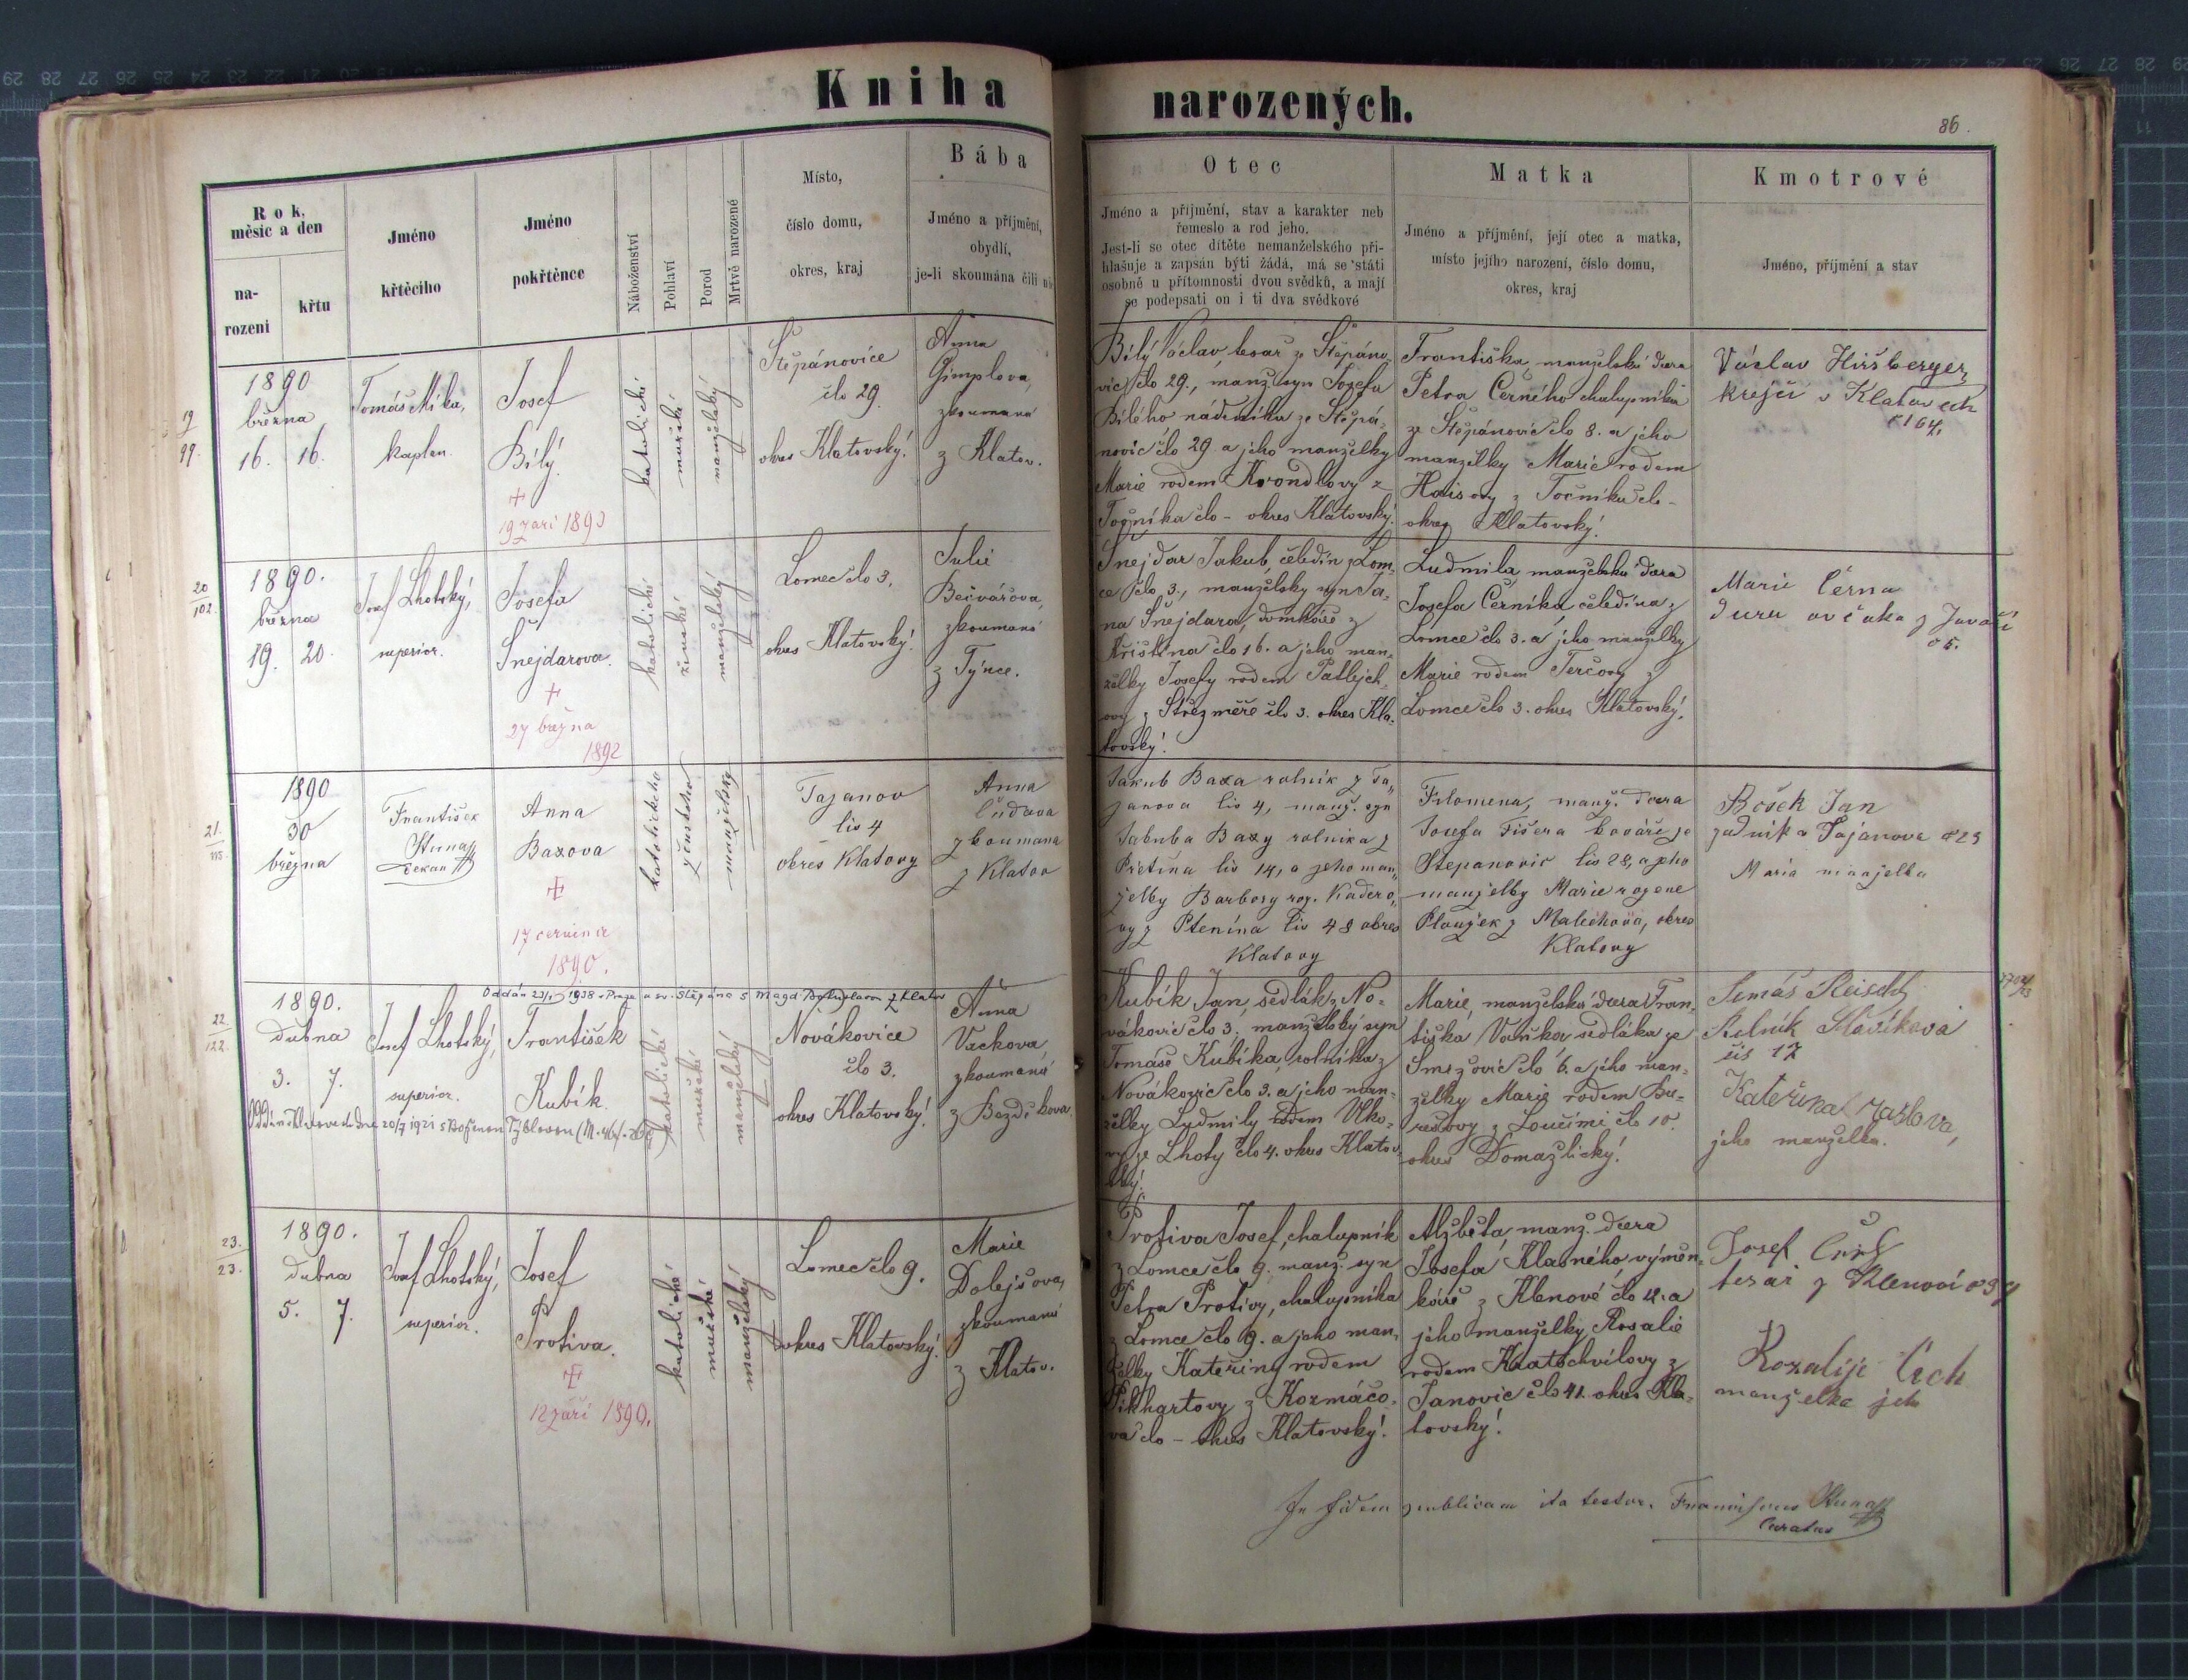 Kniha narozených.
86.
Rok, měsíc a den
na-
rození
křtu
Jméno
křtěcího
Jméno
pokřtěnce
Náboženství
Pohlaví
Porod
Mrtvě narozené
Místo,
číslo domu,
okres, kraj
Bába
Jméno a příjmění,
obydlí,
je-li skoumána čili
Otec
Jméno a příjmění, stav a karakter neb
řemeslo a rod jeho.
Jest-li se otec dítěte nemanželského při-
hlašuje a zapsán býti žádá, má se státi
osobně u přítomnosti dvou svědků, a mají
se podepsati on i ti dva svědkové
Matka
Jméno a příjmění, její otec a matka,
místo jejího narození, číslo domu,
okres, kraj
Kmotrové
Jméno, příjmění a stav
19
99.
1890
března
16. 16.
Tomáš Mika,
kaplan.
Josef
Bílý.
+
19 září 1890
katolické
mužské
manželský
Štěpánovice
člo 29.
okres Klatovský.
Anna
Gimplova,
zkoumaná
z Klatov.
Bílý Václav, tesař ze Štěpáno-
vic člo 29., manž. syn Josefa
Bílého, nádeníka ze Štěpá-
novic člo 29. a jeho manželky
Marie rodem Krondlovy z
Točníka člo - okres Klatovský.
Františka, manželská dcera
Petra Černého chalupníka
ze Štěpánovic člo 8. a jeho
manželky Marie rodem
Haisovy z Točníku člo -
okres Klatovský.
Václav Hiršberger,
krejčí v Klatovech
č 164.
20
102.
1890.
března
19. 20.
Josef Lhotský,
superior.
Josefa
Šnejdarova.
+
27 března
1892
katolické
ženské
manželský
Lomec člo 3.
okres Klatovský.
Julie
Bečvářova,
zkoumaná
z Týnce.
Šnejdar Jakub, čeledín z Lom-
ce člo 3., manželský syn Ja-
na Šnejdara, domkáře z
Křištína člo 16. a jeho man-
želky Josefy rodem Patlejch-
ovy z Střezměře člo 3. okres Kla-
tovský.
Ludmila, manželská dcera
Josefa Černíka, čeledína z
Lomce člo 3. a jeho manželky
Marie rodem Terčovy z
Lomce člo 3. okres Klatovský.
Marie Černa
dcera ovčáka z
č 5.
21.
115.
1890
30
března
František
Stuna
děkan
Anna
Baxova
+
17 června
1890.
katolického
ženského
manželský
Tajanov
čís 4
okres Klatovy
Anna
zkoumana
z Klatov
Jakub Baxa rolník z Ta-
janova čís 4, manž. syn
Jakuba Baxy rolníka z
Přetína čís 14, a jeho man-
želky Barbory roz. Kadero-
vy z Ptenína čís 48 okres
Klatovy
Filomena, manž. dcera
Josefa Fišera kováře ze
Štěpanovic čís 28, a jeho
manželky Marie rozene
Ploužek z Malechova, okres
Klatovy
Bošek Jan
zedník z Tajanova č 23
Maria manželka
22.
122.
1890.
dubna
3. 7.
Josef Lhotský,
superior.
Oddán 23/1 1938 v Praze u sv. Štěpána s Magd. Bohuslavou z Klatov
František
Kubík.
Oddán v Klatovech dne 20/7 1921 s Boženou Týblovou
katolické
mužské
manželský
Novákovice
člo 3.
okres Klatovský.
Anna
Vackova,
zkoumaná
z Bezděkova.
Kubík Jan, sedlák z No-
vákovic člo 3. manželský syn
Tomáše Kubíka, rolníka z
Novákovic člo 3. a jeho man-
želky Ludmily rodem Vlko-
vy ze Lhoty člo 4. okres Klatov-
ský.
Marie, manželská dcera Fran-
tiška Vaňka sedláka ze
Smržovic člo 6. a jeho man-
želky Marie rodem Bu-
rešovy z Loučimi člo 10.
okres Domažlický.
Tomáš Reischl
Rolník Slavíkova
čís 17
Kateřina
jeho manželka.
23.
23.
1890.
dubna
5. 7.
Josef Lhotský,
superior.
Josef
Protiva.
+
12 září 1890.
katolické
mužské
manželský
Lomec člo 9.
okres Klatovský.
Marie
Dolejšova,
zkoumaná
z Klatov.
Protiva Josef, chalupník
z Lomce člo 9. manž. syn
Petra Protivy, chalupníka
z Lomce člo 9. a jeho man-
želky Kateřiny rodem
Pikhartovy z Kozmáčo-
va člo - okres Klatovský.
Alžběta, manž. dcera
Josefa Klasného, výměn-
káře z Klenové člo 12. a
jeho manželky Rosalie
rodem Kratochvílovy z
Janovic člo 41. okres Kla-
tovský.
Josef Čech
tesař z Klenoví č 39
Rozalije Čech
manželka jeh
In fidem publicam ita testor. Franciscus Stuna
Curatus